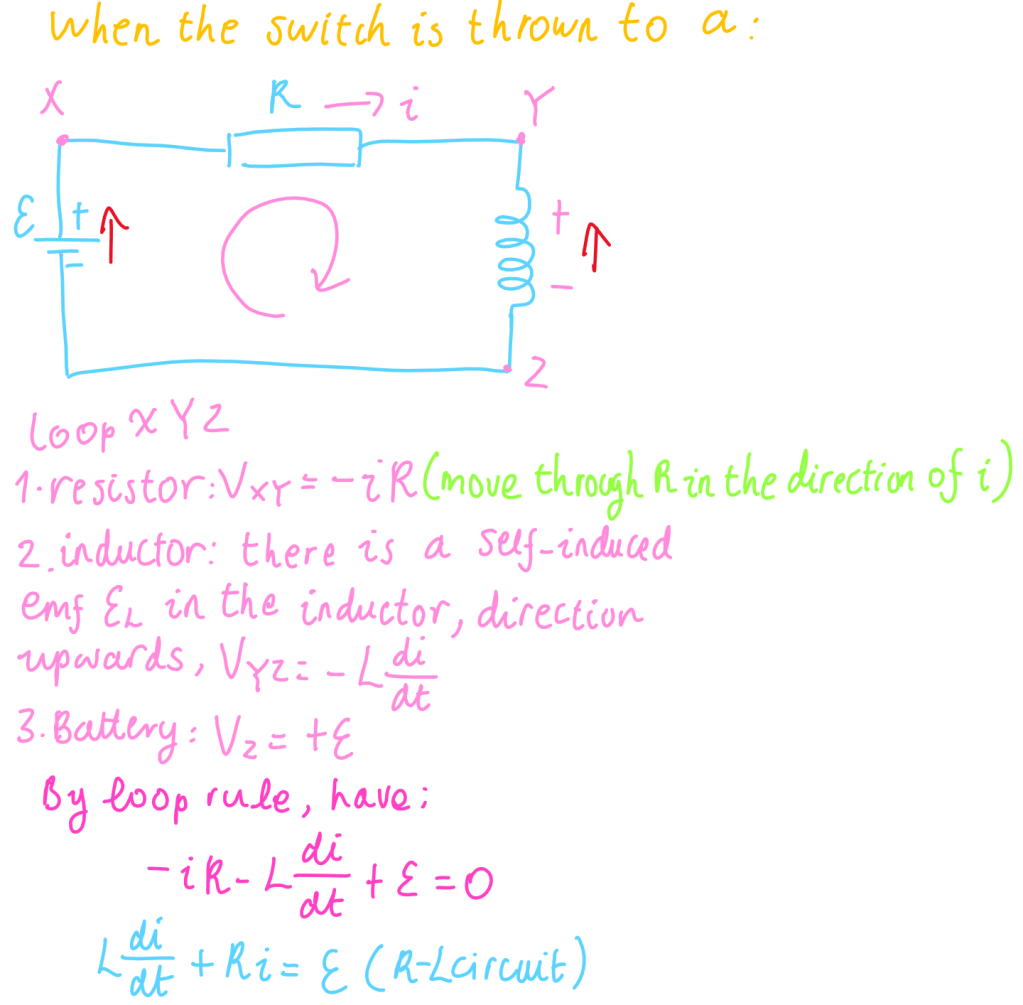 When the switch is thrown to a:
X R → i Y
ε + +
− −
Z
Loop XYZ
1. resistor: V_XY = -iR (move through R in the direction of i)
2. inductor: there is a self-induced
emf ε_L in the inductor, direction
upwards, V_YZ = -L di/dt
3. Battery: V_Z = +ε
By loop rule, have:
-iR - L di/dt + ε = 0
L di/dt + Ri = ε (R-L circuit)